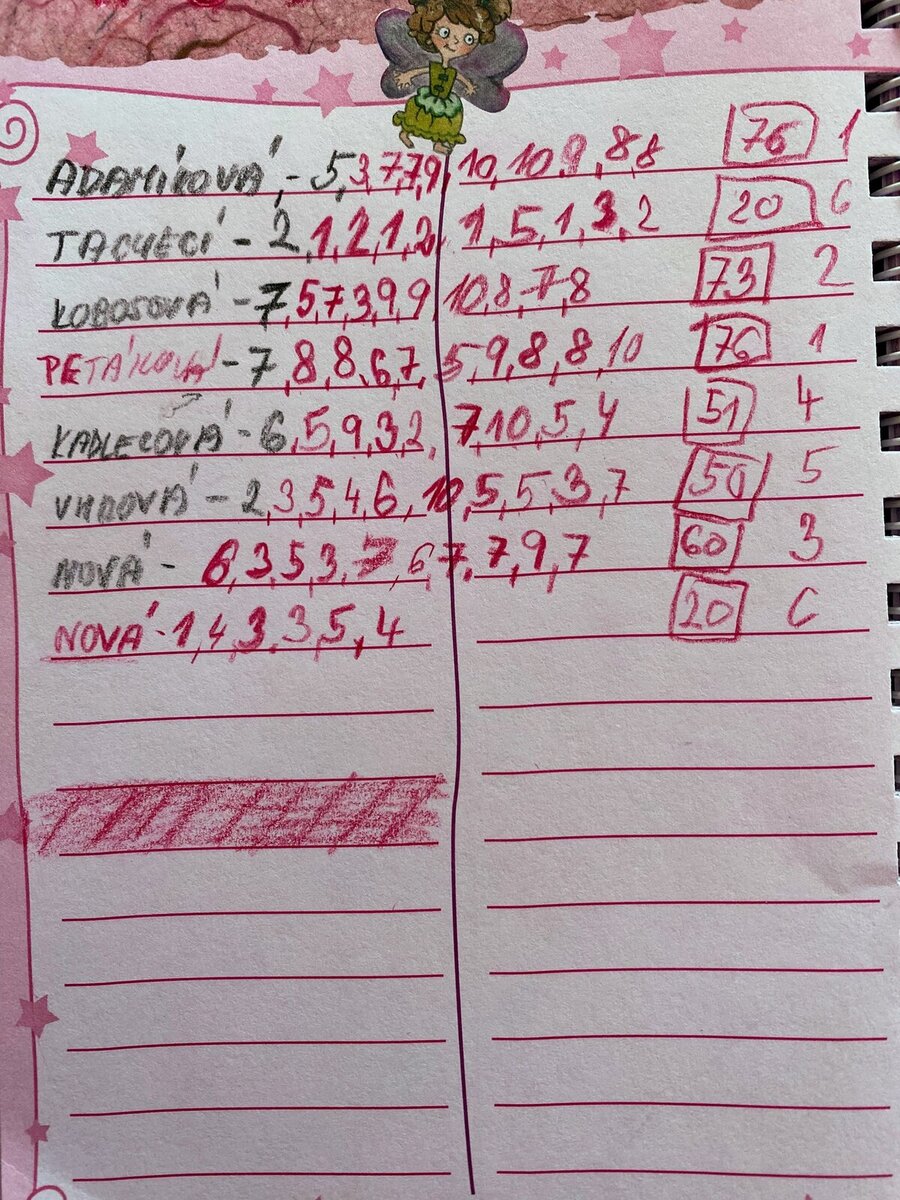 ADAMÍKOVÁ - 5,3,7,7,9 10,10,9,8,8 76 1
TACHECÍ - 2,1,2,1,2, 1,5,1,3,2 20 6
LOBOSOVÁ - 7,5,7,3,9,9 10,8,7,8 73 2
PETÁKOVÁ - 7,8,8,6,7,5,9,8,8,10 76 1
KADLECOVÁ - 6,5,9,3,2, 7,10,5,4 51 4
VHDOVÁ - 2,3,5,4,6,10,5,5,3,7 50 5
NOVÁ - 6,3,5,3,7,6,7,7,9,7 60 3
NOVÁ - 1,4,3,3,5,4 20 6